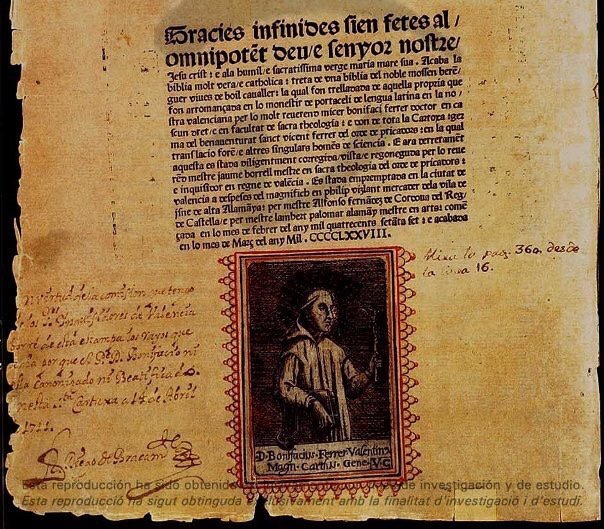 Gracies infinides sien fetes al /
omnipotẽt deu / e senyor nostre /
Jesu crist : e ala humil / e sacratissima verge maria mare sua . Acaba la
biblia molt vera / e catholica : treta de vna biblia del noble mossen berẽ/
guer viues de boil caualler : la qual fon trelladada de aquella propria que
fon arromançada en lo monestir de portaceli de lengua latina en la no/
stra valenciana per lo molt reuerend micer bonifaci ferrer doctor en ca
scun dret / e en facultat de sacra theologia : e don de tota la Cartoxa : ger
ma del benauenturat sanct vicent ferrer del orde de pricadors : en la qual
translacio forẽ / e altres singulars homẽs de sciencia . E ara derreramẽt
aquesta es stada diligentment corregida / vista / e regoneguda per lo reue
rẽd mestre jaume borrell mestre en sacra theologia del orde de pricadors :
e inquisidor en regne de valẽcia . Es stada empremptada en la ciutat de
valencia a despeses del magnifich en philip vizlant mercader dela vila de
jsne de alta Alamãya : per mestre Alfonso fernãdez de Cordoua del Reg/
de Castella / e per mestre lambert palomar alamãy mestre en arts : comẽ
çada en lo mes de febrer del any mil quatrecents setãta set : e acabada
en lo mes de Març del any Mil . CCCCLXXVIII.
Mira la pag. 360. desde
la linea 16.
En virtud de la comission que tengo
de los SS. Inquisidores de Valencia
borrè de esta estampa los rayos que
tenia por que el P. D. Bonifacio ni
esta Canonizado ni Beatificado.
Cartuxa a 14 de Abril
1711.
D. Bonifacius Ferrer Valentinus
Magn. Cartus. Gene.
Esta reproducción ha sido obtenida de investigación y de estudio.
Esta reproducció ha sigut obtinguda exclusivament amb la finalitat d'investigació i d'estudi.